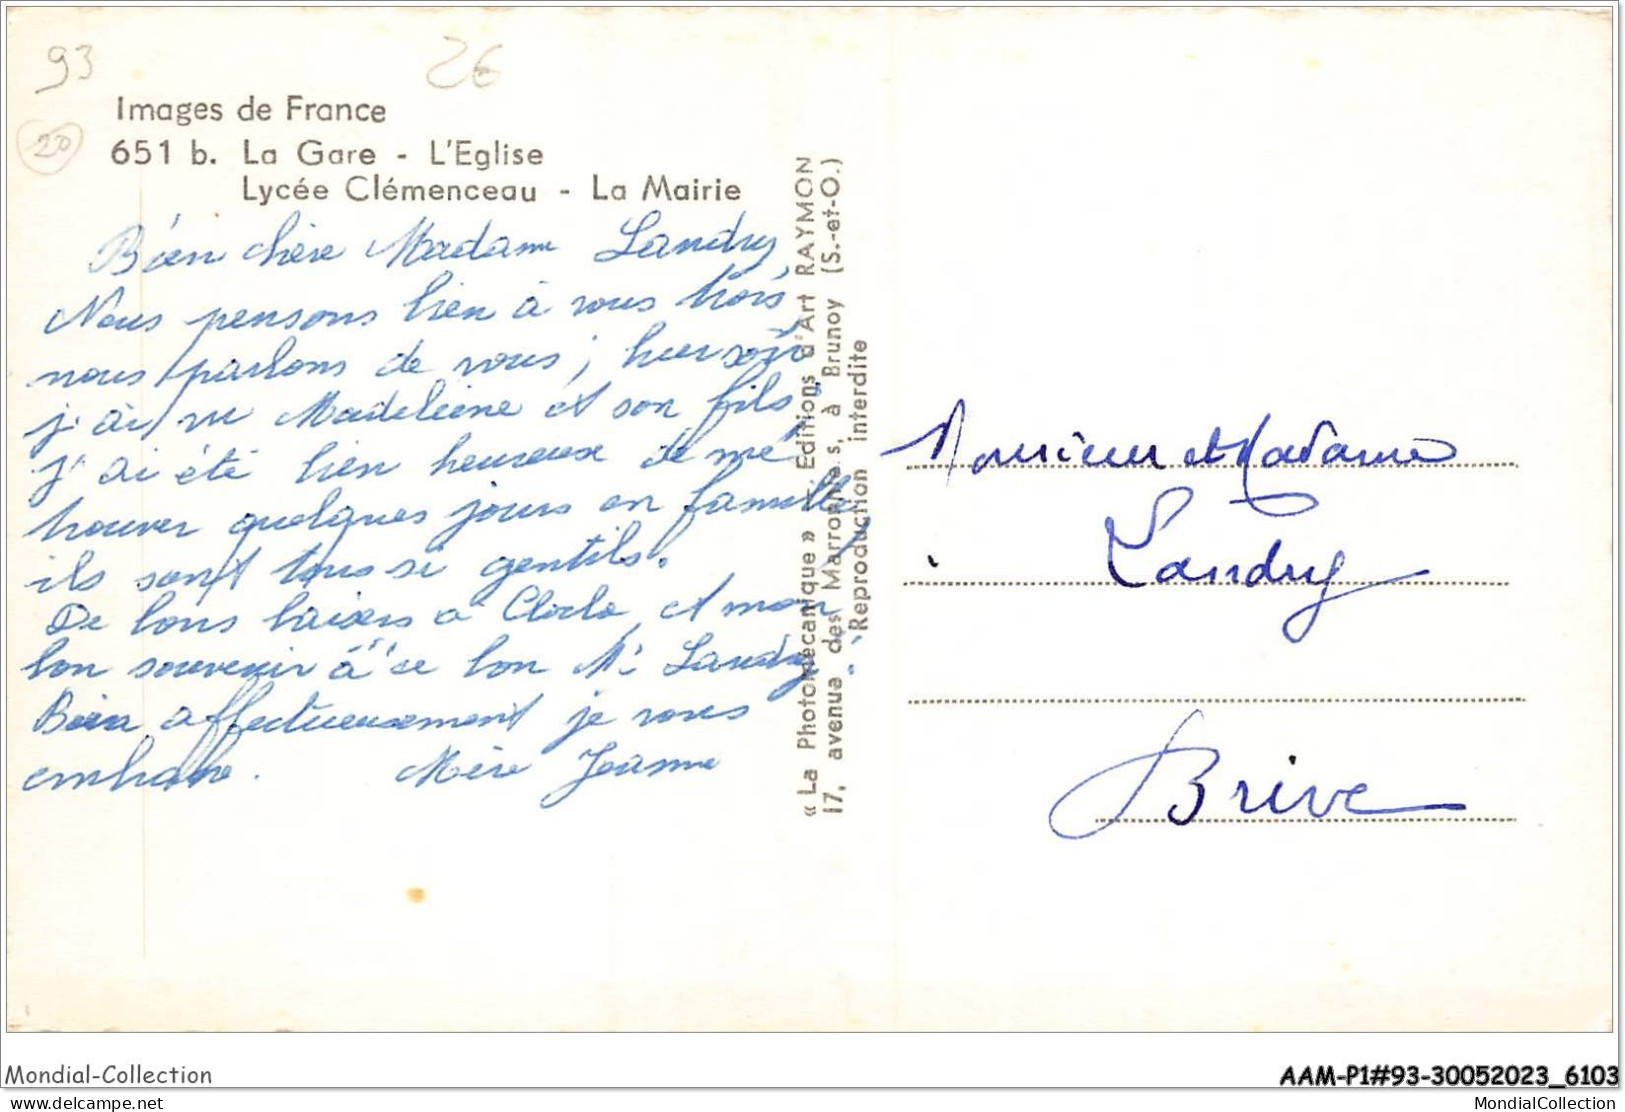 93
26
20
Images de France
651 b. La Gare - L'Eglise
Lycée Clémenceau - La Mairie
Bien chère Madame Landry
Nous pensons bien à vous trois,
nous parlons de vous ; hier soir
j'ai vu Madeleine et son fils,
j'ai été bien heureuse de me
trouver quelques jours en famille,
ils sont tous si gentils.
De bons baisers à et mon
bon souvenir à ce bon Mr Landry !
Bien affectueusement je vous
embrasse. Mère Jeanne
« La Photomécanique » Editions d'Art RAYMON
17, avenue des Marronniers, à Brunoy (S.-et-O.)
Reproduction interdite
Monsieur et Madame
Landry
Brive
Mondial-Collection
AAM-P1#93-30052023_6103
mondial-collection.delcampe.net
MondialCollection